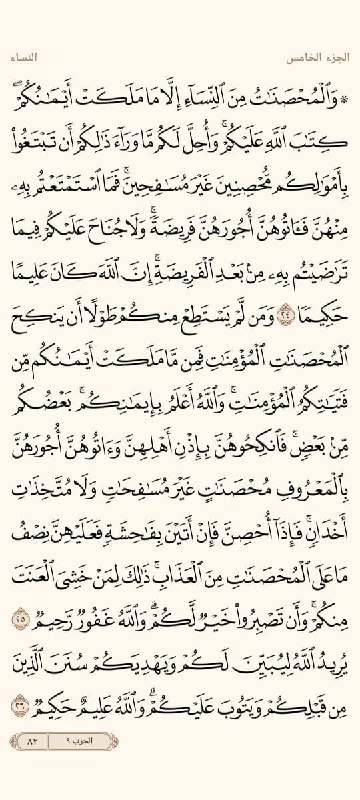 الجزء الخامس
النساء
* وَالْمُحْصَنَاتُ مِنَ النِّسَاءِ إِلَّا مَا مَلَكَتْ أَيْمَانُكُمْ
كِتَابَ اللَّهِ عَلَيْكُمْ وَأُحِلَّ لَكُم مَّا وَرَاءَ ذَٰلِكُمْ أَن تَبْتَغُوا
بِأَمْوَالِكُم مُّحْصِنِينَ غَيْرَ مُسَافِحِينَ فَمَا اسْتَمْتَعْتُم بِهِ
مِنْهُنَّ فَآتُوهُنَّ أُجُورَهُنَّ فَرِيضَةً وَلَا جُنَاحَ عَلَيْكُمْ فِيمَا
تَرَاضَيْتُم بِهِ مِن بَعْدِ الْفَرِيضَةِ إِنَّ اللَّهَ كَانَ عَلِيمًا
حَكِيمًا ٢٤ وَمَن لَّمْ يَسْتَطِعْ مِنكُمْ طَوْلًا أَن يَنكِحَ
الْمُحْصَنَاتِ الْمُؤْمِنَاتِ فَمِن مَّا مَلَكَتْ أَيْمَانُكُم مِّن
فَتَيَاتِكُمُ الْمُؤْمِنَاتِ وَاللَّهُ أَعْلَمُ بِإِيمَانِكُم بَعْضُكُم
مِّن بَعْضٍ فَانكِحُوهُنَّ بِإِذْنِ أَهْلِهِنَّ وَآتُوهُنَّ أُجُورَهُنَّ
بِالْمَعْرُوفِ مُحْصَنَاتٍ غَيْرَ مُسَافِحَاتٍ وَلَا مُتَّخِذَاتِ
أَخْدَانٍ فَإِذَا أُحْصِنَّ فَإِنْ أَتَيْنَ بِفَاحِشَةٍ فَعَلَيْهِنَّ نِصْفُ
مَا عَلَى الْمُحْصَنَاتِ مِنَ الْعَذَابِ ذَٰلِكَ لِمَنْ خَشِيَ الْعَنَتَ
مِنكُمْ وَأَن تَصْبِرُوا خَيْرٌ لَّكُمْ وَاللَّهُ غَفُورٌ رَّحِيمٌ ٢٥
يُرِيدُ اللَّهُ لِيُبَيِّنَ لَكُمْ وَيَهْدِيَكُمْ سُنَنَ الَّذِينَ
مِن قَبْلِكُمْ وَيَتُوبَ عَلَيْكُمْ وَاللَّهُ عَلِيمٌ حَكِيمٌ ٢٦
الحزب ٩
٨٢